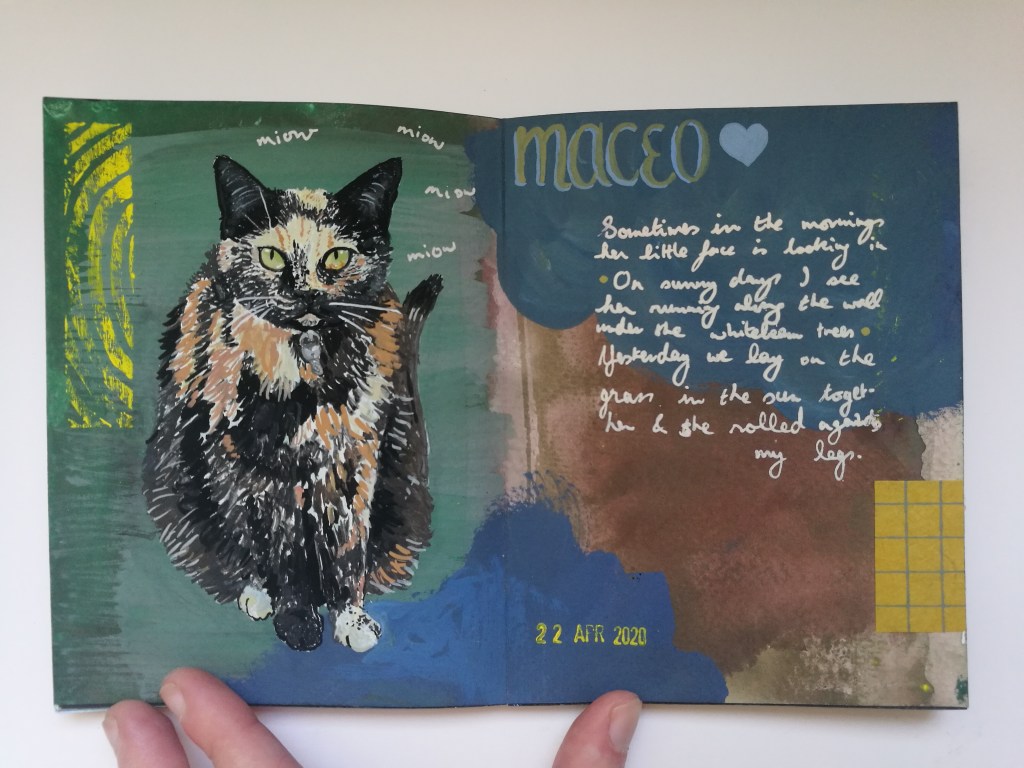 miow
miow
miow
miow
MACEO
Sometimes in the mornings
her little face is looking in
• On sunny days I see
her running along the wall
under the whitebeam trees •
Yesterday we lay on the
grass in the sun toget-
her & she rolled against
my legs.
22 APR 2020